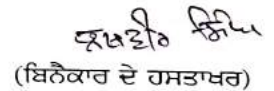 ਲਖਵੀਰ ਸਿੰਘ
(ਬਿਨੈਕਾਰ ਦੇ ਹਸਤਾਖਰ)